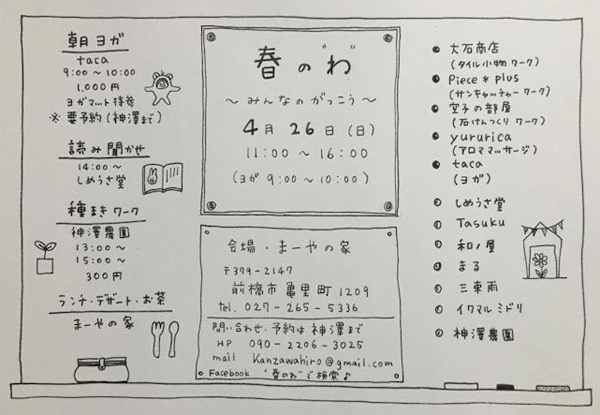 朝ヨガ
taca
9:00～10:00
1,000円
ヨガマット持参
※要予約(神澤まで)
読み聞かせ
14:00～
しめうさ堂
種まきワーク
神澤農園
13:00～
15:00～
300円
ランチ・デザート・お茶
まーやの家
春の"わ"
～みんなのがっこう～
4月26日(日)
11:00～16:00
(ヨガ 9:00～10:00)
会場・まーやの家
〒379-2147
前橋市亀里町1209
tel. 027-265-5336
問い合わせ・予約は神澤まで
HP 090-2206-3025
mail Kanzawahiro@gmail.com
Facebook "春のわ"で検索♪
大石商店
(タイル小物ワーク)
Piece*plus
(サンキャッチャーワーク)
空子の部屋
(石けんつくりワーク)
yururica
(アロママッサージ)
taca
(ヨガ)
しめうさ堂
Tasuku
和ノ屋
まる
三東雨
イワマルミドリ
神澤農園